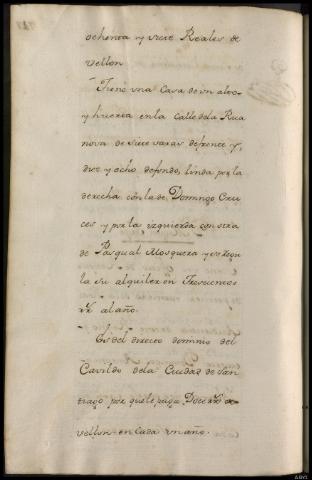 ochenta y siete Reales de
vellon
Tiene una Casa de un alto
y huerta en la Calle de la Rua
nova de siete varas de frente y,
diez y ocho de fondo, linda por la
derecha con la de Domingo Cru
ces y por la izquierda con otra
de Pasqual Mosquera y se regu
la su alquiler en Trescientos
Rs. al año.
Es del directo dominio del
Cavildo de la Ciudad de San
tiago por que le paga Doce Rs. de
vellon en cada un año.